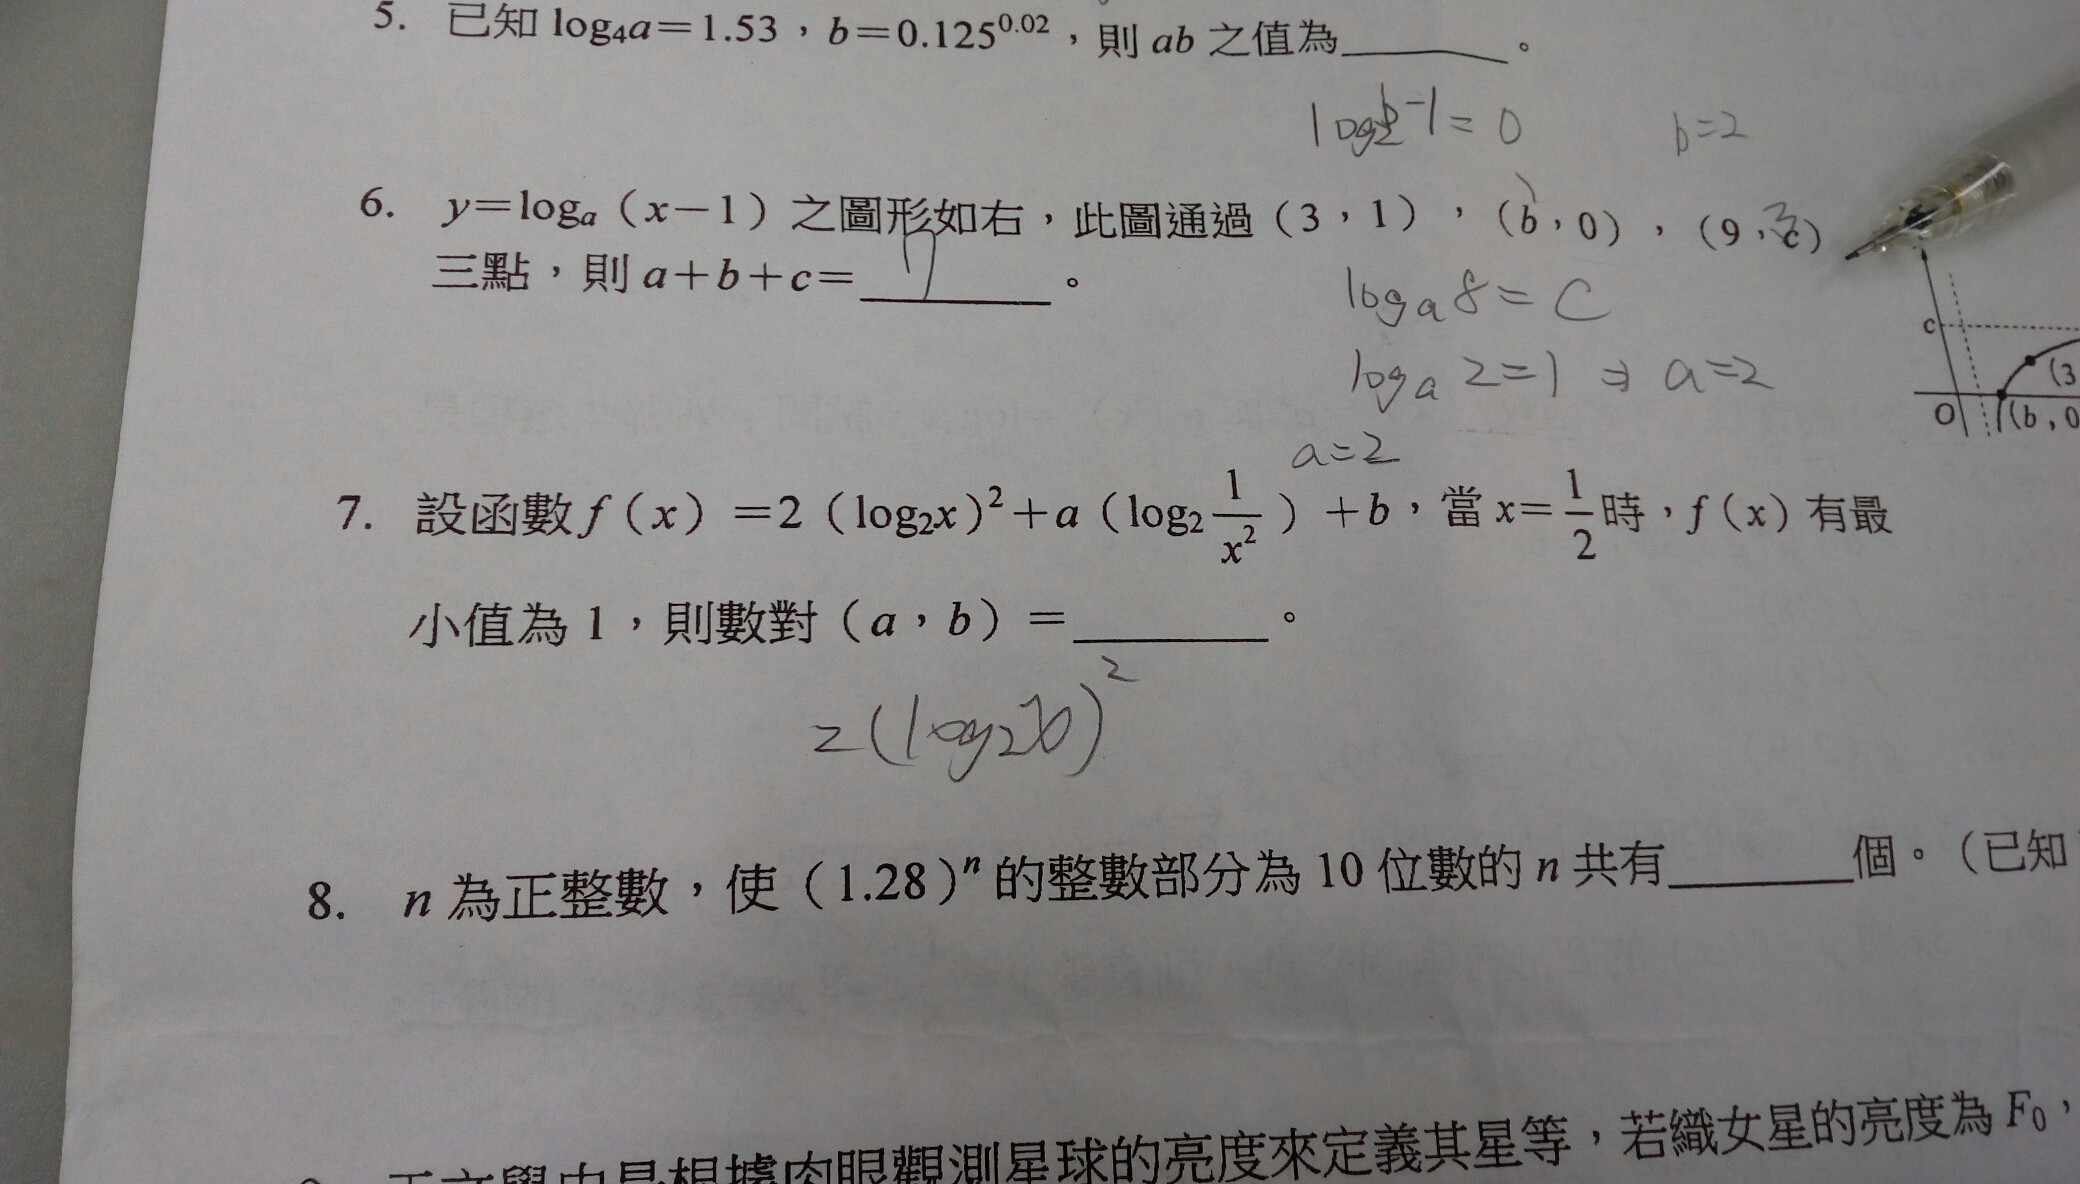 5. 已知 log₄a=1.53，b=0.125^0.02，則 ab 之值為______。
log₂b-1=0 b=2
6. y=logₐ（x－1）之圖形如右，此圖通過（3，1），（b，0），（9，c）
三點，則 a＋b＋c＝ 7 。
logₐ8=C
logₐ2=1 ⇒ a=2
c
(3
O (b，0
a=2
7. 設函數 f（x）＝2（log₂x）²＋a（log₂ 1/x²）＋b，當 x＝1/2 時，f（x）有最
小值為 1，則數對（a，b）＝______。
8. n 為正整數，使（1.28）ⁿ 的整數部分為 10 位數的 n 共有______個。（已知
天文學中是根據肉眼觀測星球的亮度來定義其星等，若織女星的亮度為 F₀，